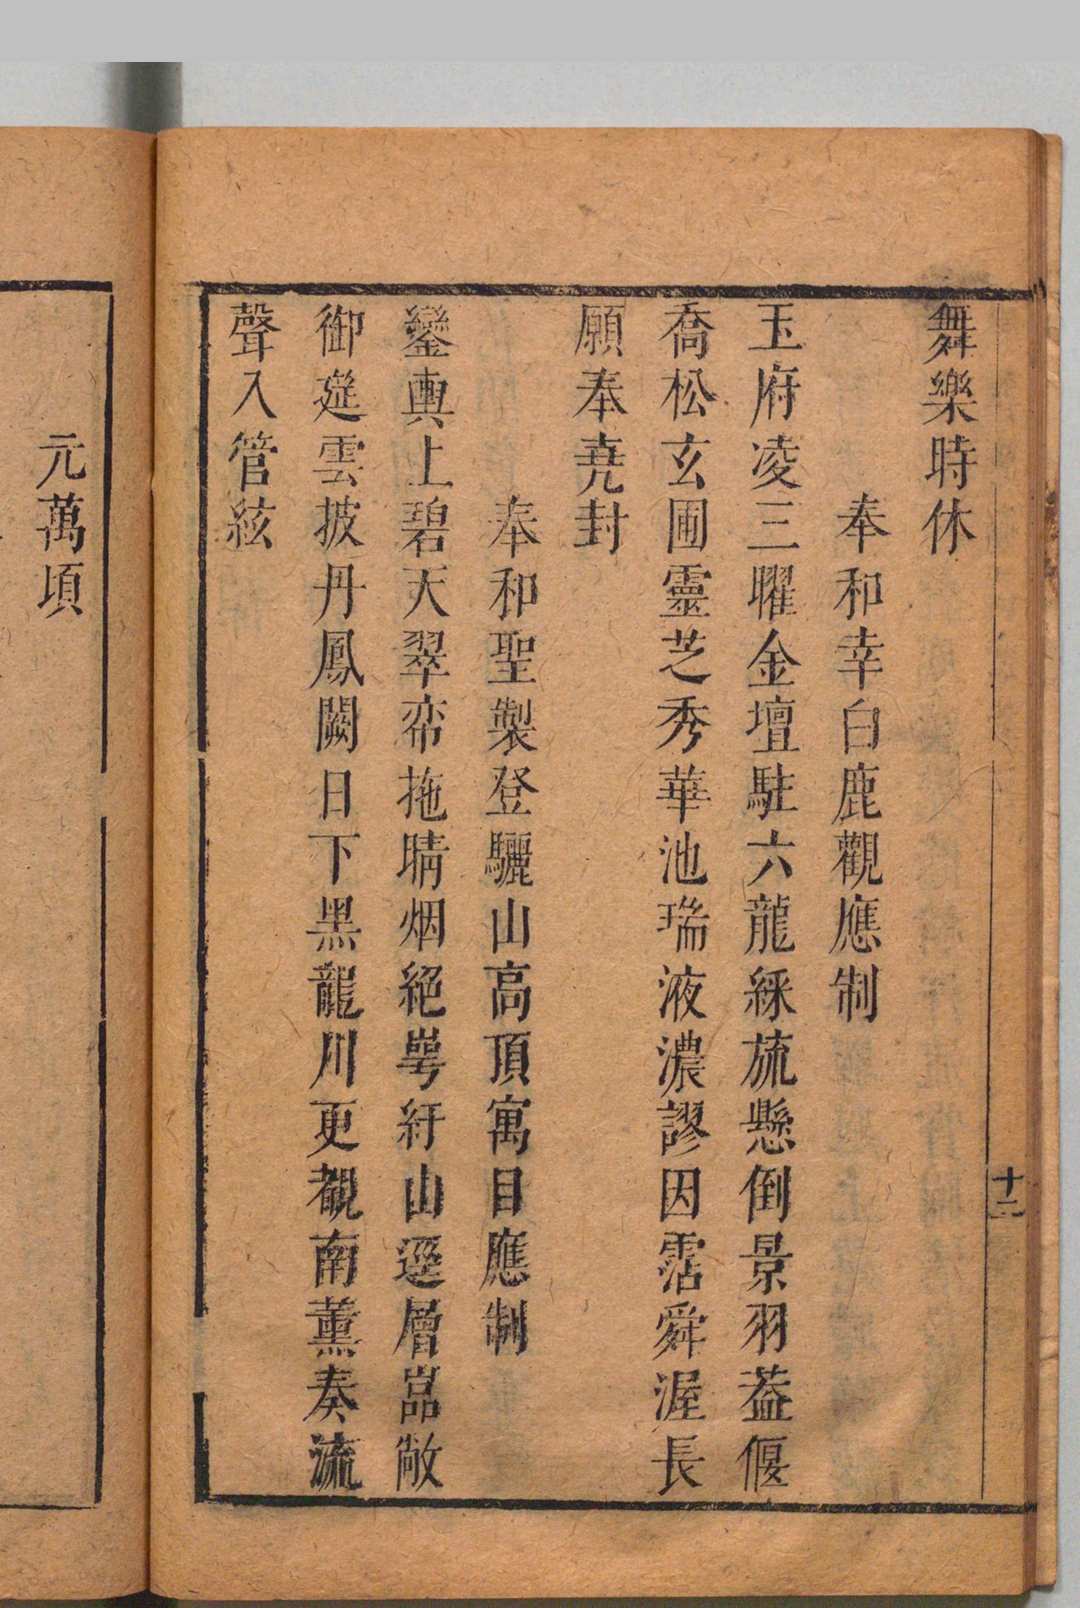 舞樂時休
奉和幸白鹿觀應制
玉府凌三曜金壇駐六龍綵旒懸倒景羽葢偃
喬松玄圃靈芝秀華池瑞液濃謬因霑舜渥長
願奉堯封
奉和聖製登驪山高頂寓目應制
鑾輿上碧天翠帟拖晴烟絕崿紆山逕層嵓敞
御筵雲披丹鳳闕日下黑龍川更覩南薰奏流
聲入管絃
十二
元萬頃